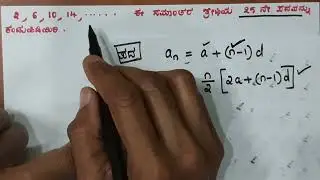 2, 6, 10, 14, ...... ಈ ಸಮಾಂತರ ಶ್ರೇಢಿಯ 25 ನೇ ಪದವನ್ನು
ಕಂಡುಹಿಡಿಯಿರಿ.
ಪದ aₙ = a + (n-1) d
n/2 [2a + (n-1) d]